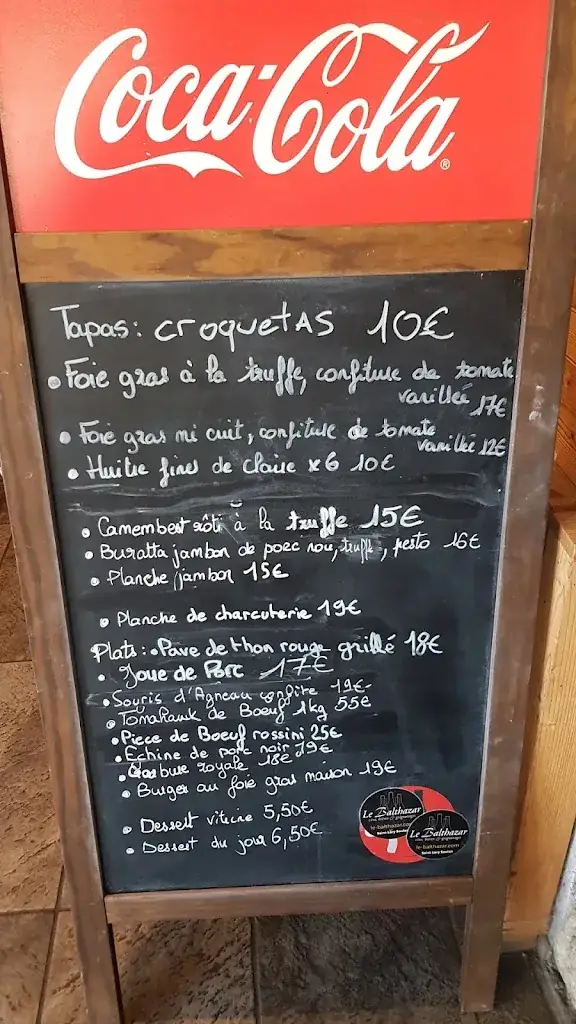 Coca-Cola
®
Tapas: croquetas 10€
• Foie gras à la truffe, confiture de tomate
vanillée 17€
• Foie gras mi cuit, confiture de tomate
vanillée 12€
• Huitre fines de claire x6 10€
• Camembert rôti à la truffe 15€
• Buratta jambon de porc noir, truffe, pesto 16€
• Planche jambon 15€
• Planche de charcuterie 19€
Plats: • Pave de thon rouge grillé 18€
• Joue de Porc 17€
• Souris d'Agneau confite 19€
• Tomahawk de Boeuf 1kg 55€
• Piece de Boeuf rossini 25€
• Echine de porc noir 19€
• Garbure royale 18€
• Burger au foie gras maison 19€
• Dessert vitrine 5,50€
• Dessert du jour 6,50€
Le Balthazar
le-balthazar.com
Le Balthazar
le-balthazar.com